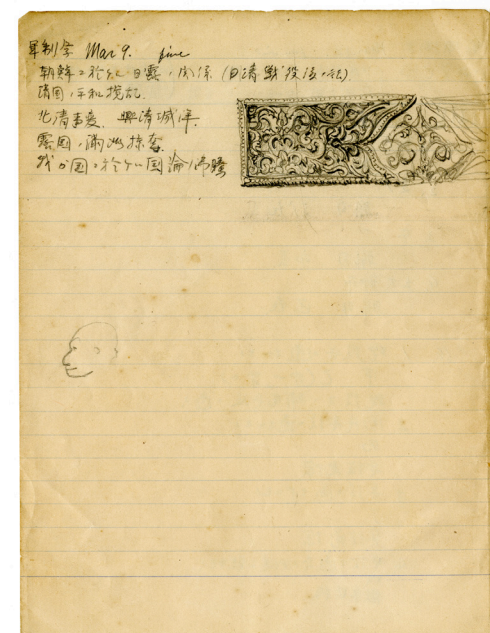 軍制学 Mar 9. fine
朝鮮ニ於ケル日露ノ関係 (日清戦役後ノ
清国ノ平和撹乱
北清事変 
露国ノ満州
我ガ国ニ於ケル国論ノ沸騰